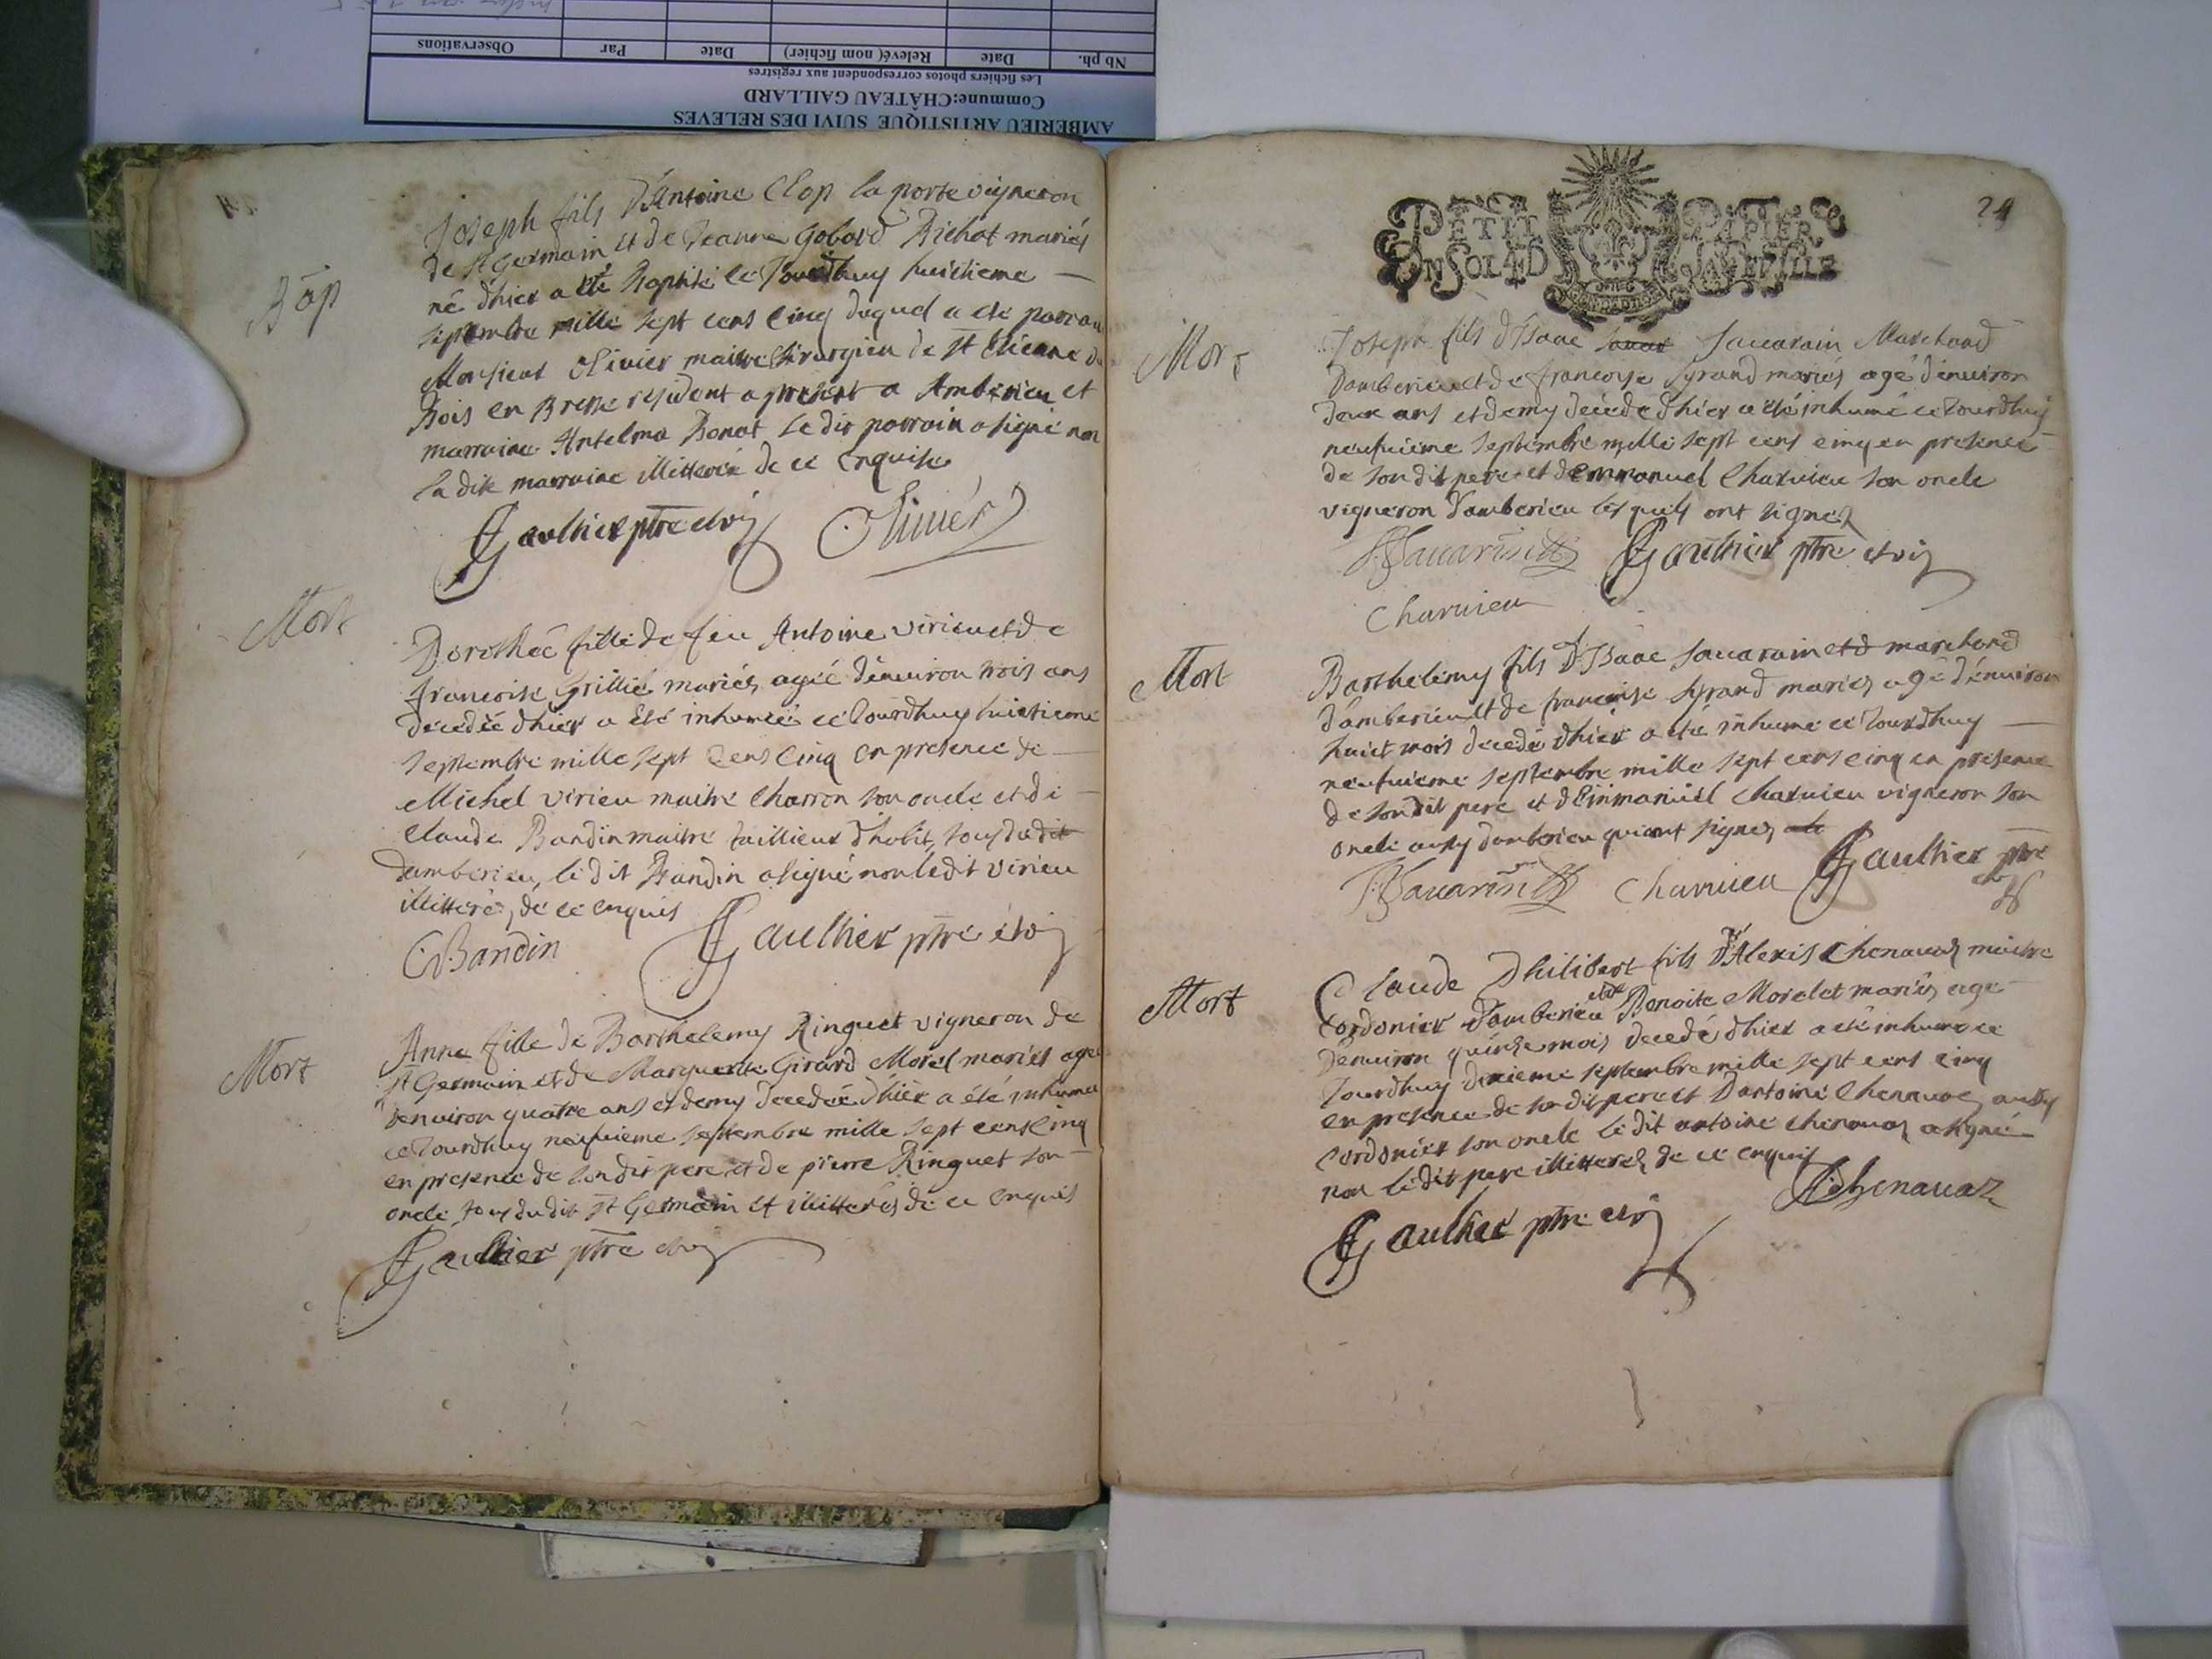 AMBERIEU ARTISTIQUE SUIVI DES RELEVES
Commune:CHÂTEAU GAILLARD
Les fichiers photos correspondent aux registres
Nb ph.
Date
Relevé (nom fichier)
Date
Par
Observations
Bap
Joseph fils d'Antoine Clop la porte vigneron
de st Germain et de Jeanne Gobard Richot mariés
né dhier a été Baptisé ce Jourdhuy huictieme
septembre mille sept cens Cinq duquel a été parrain
Monsieur Olivier maistre Chirurgien de st Etienne du
Bois en Bresse résident a present a Amberieu et
marraine Antelma Bonat le dit parrain a signé non
la dite marraine illitterée de ce Enquise
Gaulthier ptre et vic
Olivier
Mort
Dorothée fille de feu Antoine virieu et de
francoise Grillié mariés agée d'environ trois ans
décédée dhier a été inhumée ce Jourdhuy huictieme
septembre mille sept Cens Cinq en presence de
Michel virieu maitre Charron son oncle et de
Claude Bandin maitre taillieur dhabit, tous de dit
damberieu, le dit Bandin a signé non ledit virieu
illitteré, de ce enquis
C Bandin
Gaulthier ptre et vic
Mort
Anne fille de Barthelemy Ringuet vigneron de
st Germain et de Marguerite Girard Morel mariés agée
denviron quatre ans et demy decedée dhier a été inhumée
ce Jourdhuy neufuieme septembre mille sept cens Cinq
en presence de son dit pere et de pierre Ringuet son
oncle tous du dit st Germain et illitterés de ce enquis
Gaulthier ptre et vic
24
PETIT PAPIER
EN SOL 4 D LA FEUILLE
Mort
Joseph fils d'Isaac Savarain Marchand
damberieu et de francoise Grand mariés agé d'environ
deux ans et demy decedé dhier a été inhumé ce Jourdhuy
neufuieme septembre mille sept cens cinq en presence
de son dit pere et demmanuel Charvieu son oncle
vigneron damberieu lesquels ont signez
Savarin
Gaulthier ptre et vic
Charvieu
Mort
Barthelemy fils d'Isaac Savarain et d marchand
d'amberieu et de francoise Grand mariés agé d'environ
huict mois decedé dhier a été inhumé ce Jourdhuy
neufuieme septembre mille sept cens cinq en presence
de son dit pere et d'Emmanuel Charvieu vigneron son
oncle aussy damberieu qui ont signez
Gaulthier ptre
Savarin
Charvieu
Mort
Claude Philibert fils d'Alexis Chenavaz maitre
Cordonier damberieu et de Benoite Morelet mariés agé
denviron quinze mois decedé dhier a été inhumé ce
Jourdhuy dixieme septembre mille sept cens cinq
en presence de son dit pere et Dantoine Chenavaz aussy
Cordonier son oncle le dit antoine chenavaz a signé
non le dit pere illitteré de ce enquis
Chenavaz
Gaulthier ptre et vic